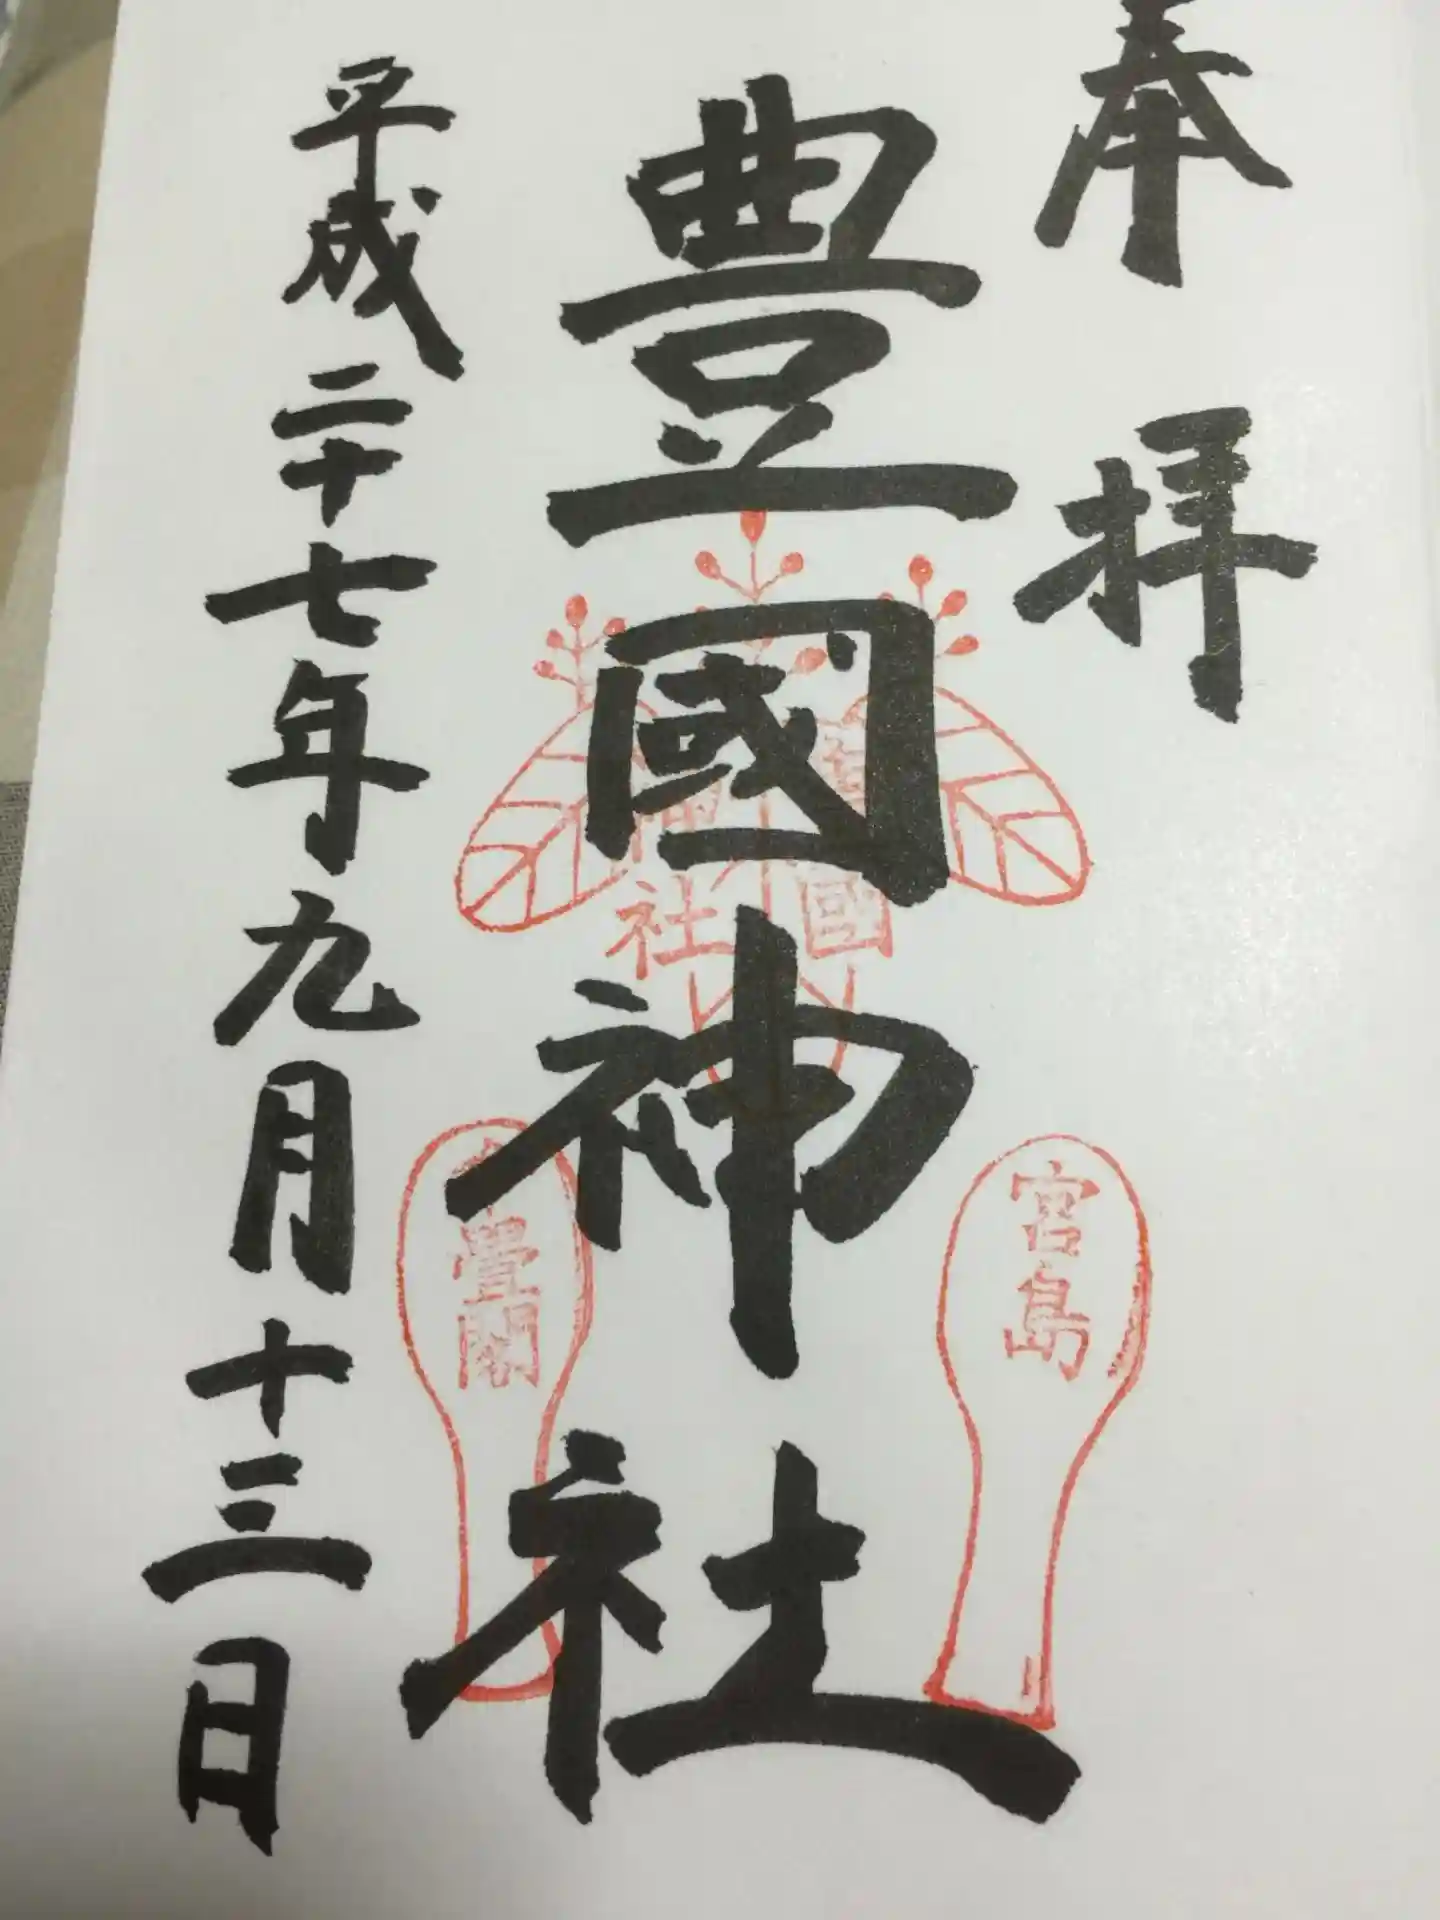 奉拝
豊國神社
平成二十七年九月十三日
國
社
宮島
畳閣